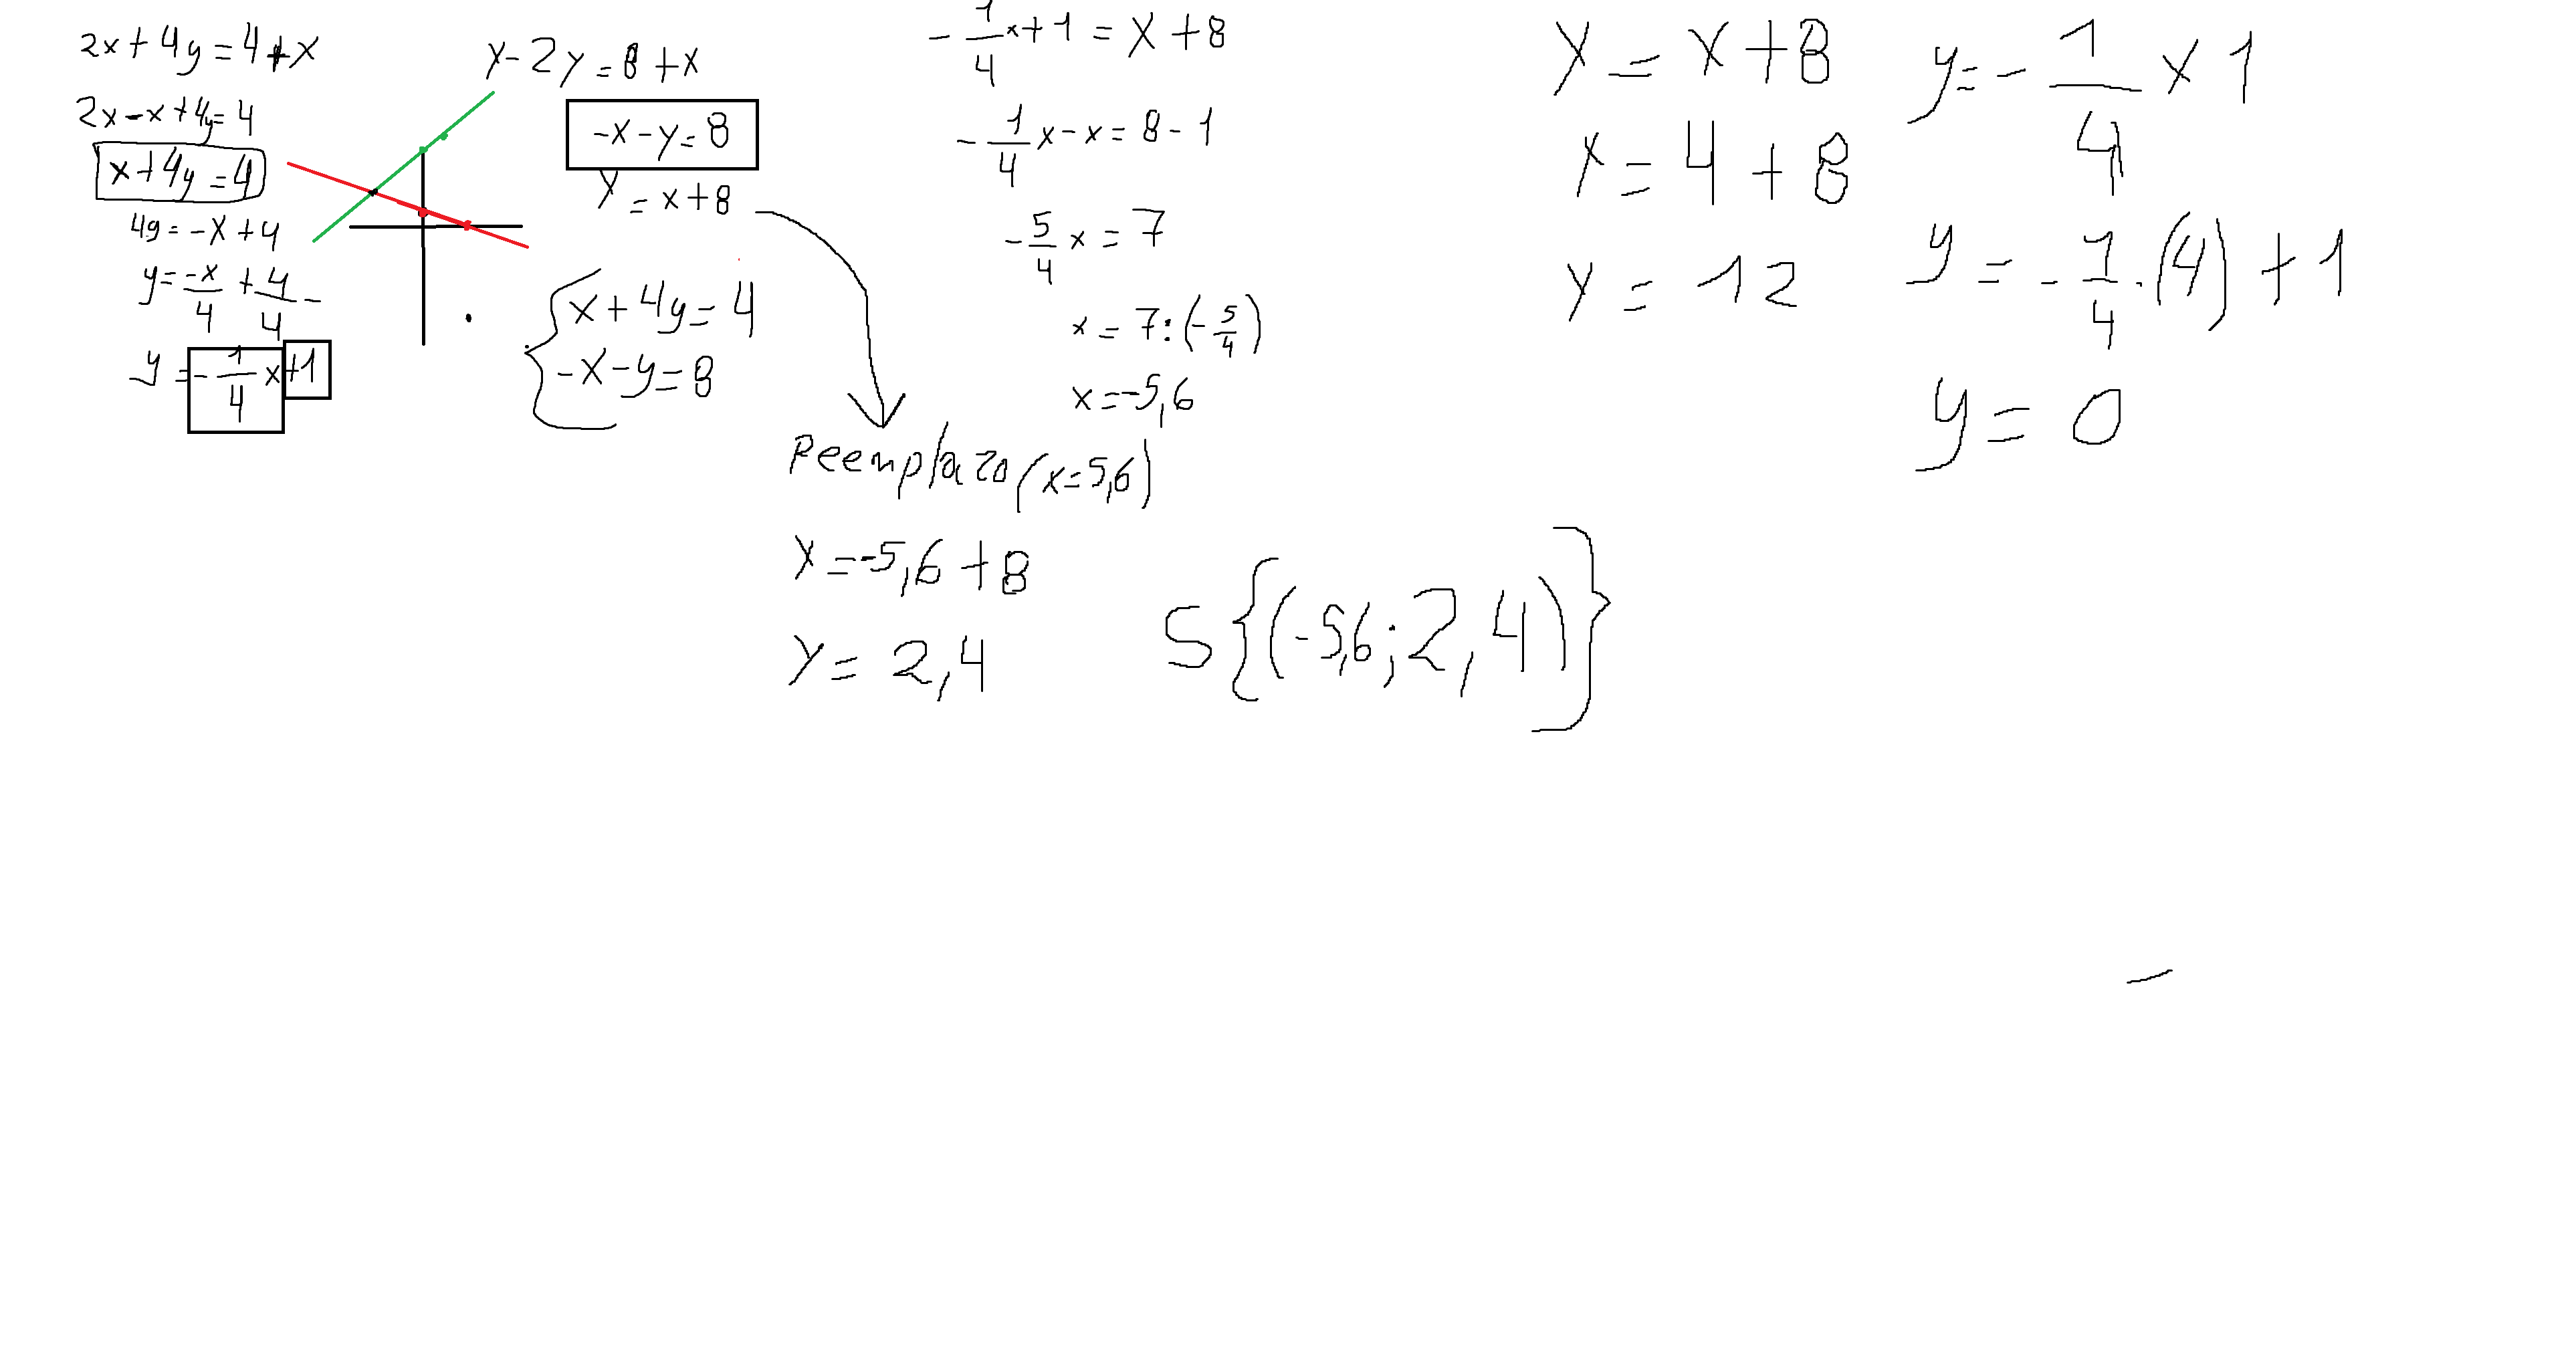 2x + 4y = 4 + x
2x - x + 4y = 4
x + 4y = 4
4y = -x + 4
y = -x/4 + 4/4 -
y = -1/4 x +1
y - 2y = 8 + x
-x - y = 8
y = x + 8
{ x + 4y = 4
-x - y = 8
-1/4 x + 1 = x + 8
-1/4 x - x = 8 - 1
-5/4 x = 7
x = 7 : (-5/4)
x = -5,6
Reemplazo (x = 5,6)
y = -5,6 + 8
y = 2,4
S {(-5,6 ; 2,4)}
y = x + 8
y = 4 + 8
y = 12
y = -1/4 x 1
y = -1/4 . (4) + 1
y = 0